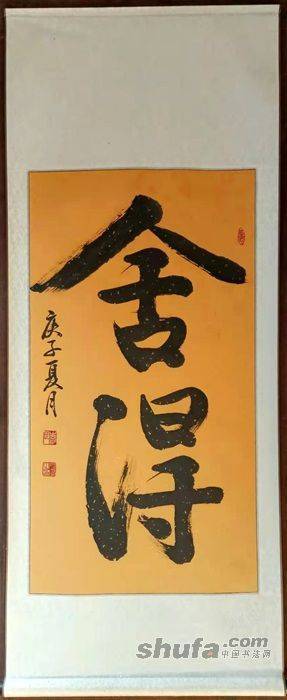 舍得
庚子夏月
shufa.com
中国书法网